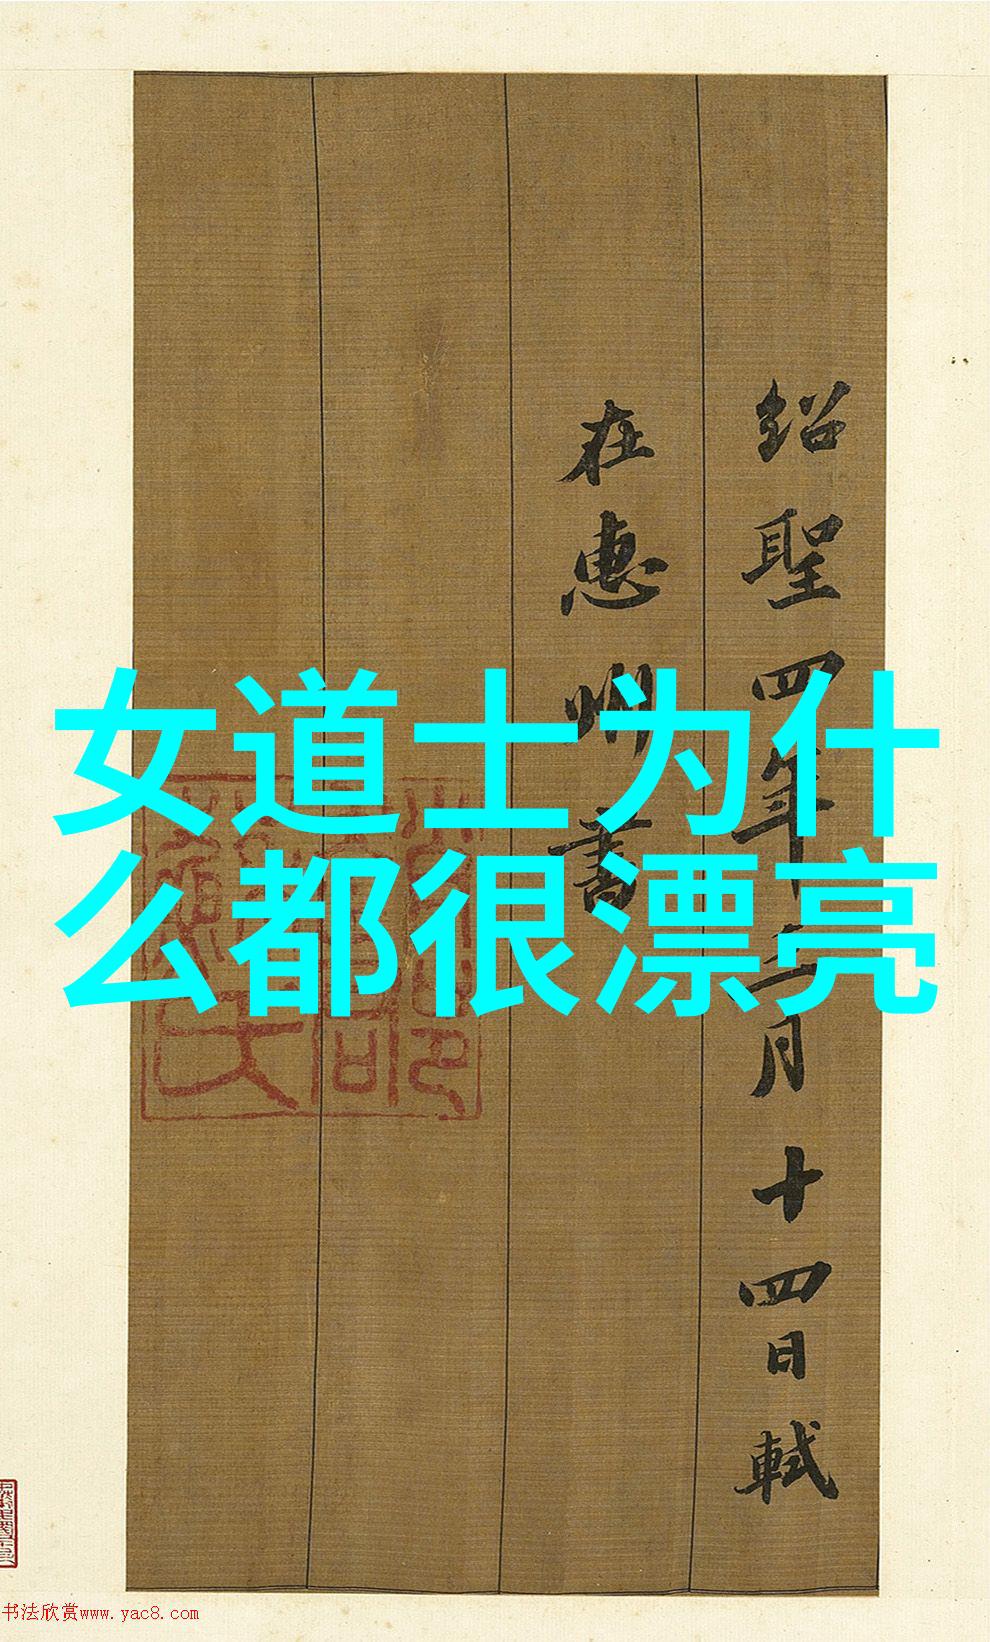 女道士为什
么都很漂亮
紹聖四年二月十四日軾
在惠州書
书法欣赏www.yac8.com